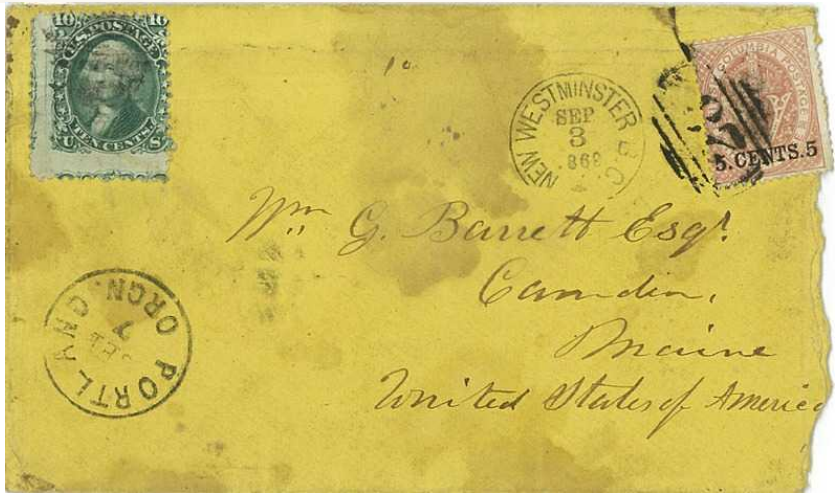 10 10
U.S. POSTAGE
TEN CENTS
U S
NEW WESTMINSTER B.C
SEP
3
868
COLUMBIA POSTAGE
5.CENTS.5
Wm G. Barrett Esqr.
Camden,
Maine
United States of America
PORTLAND
ORGN.
7